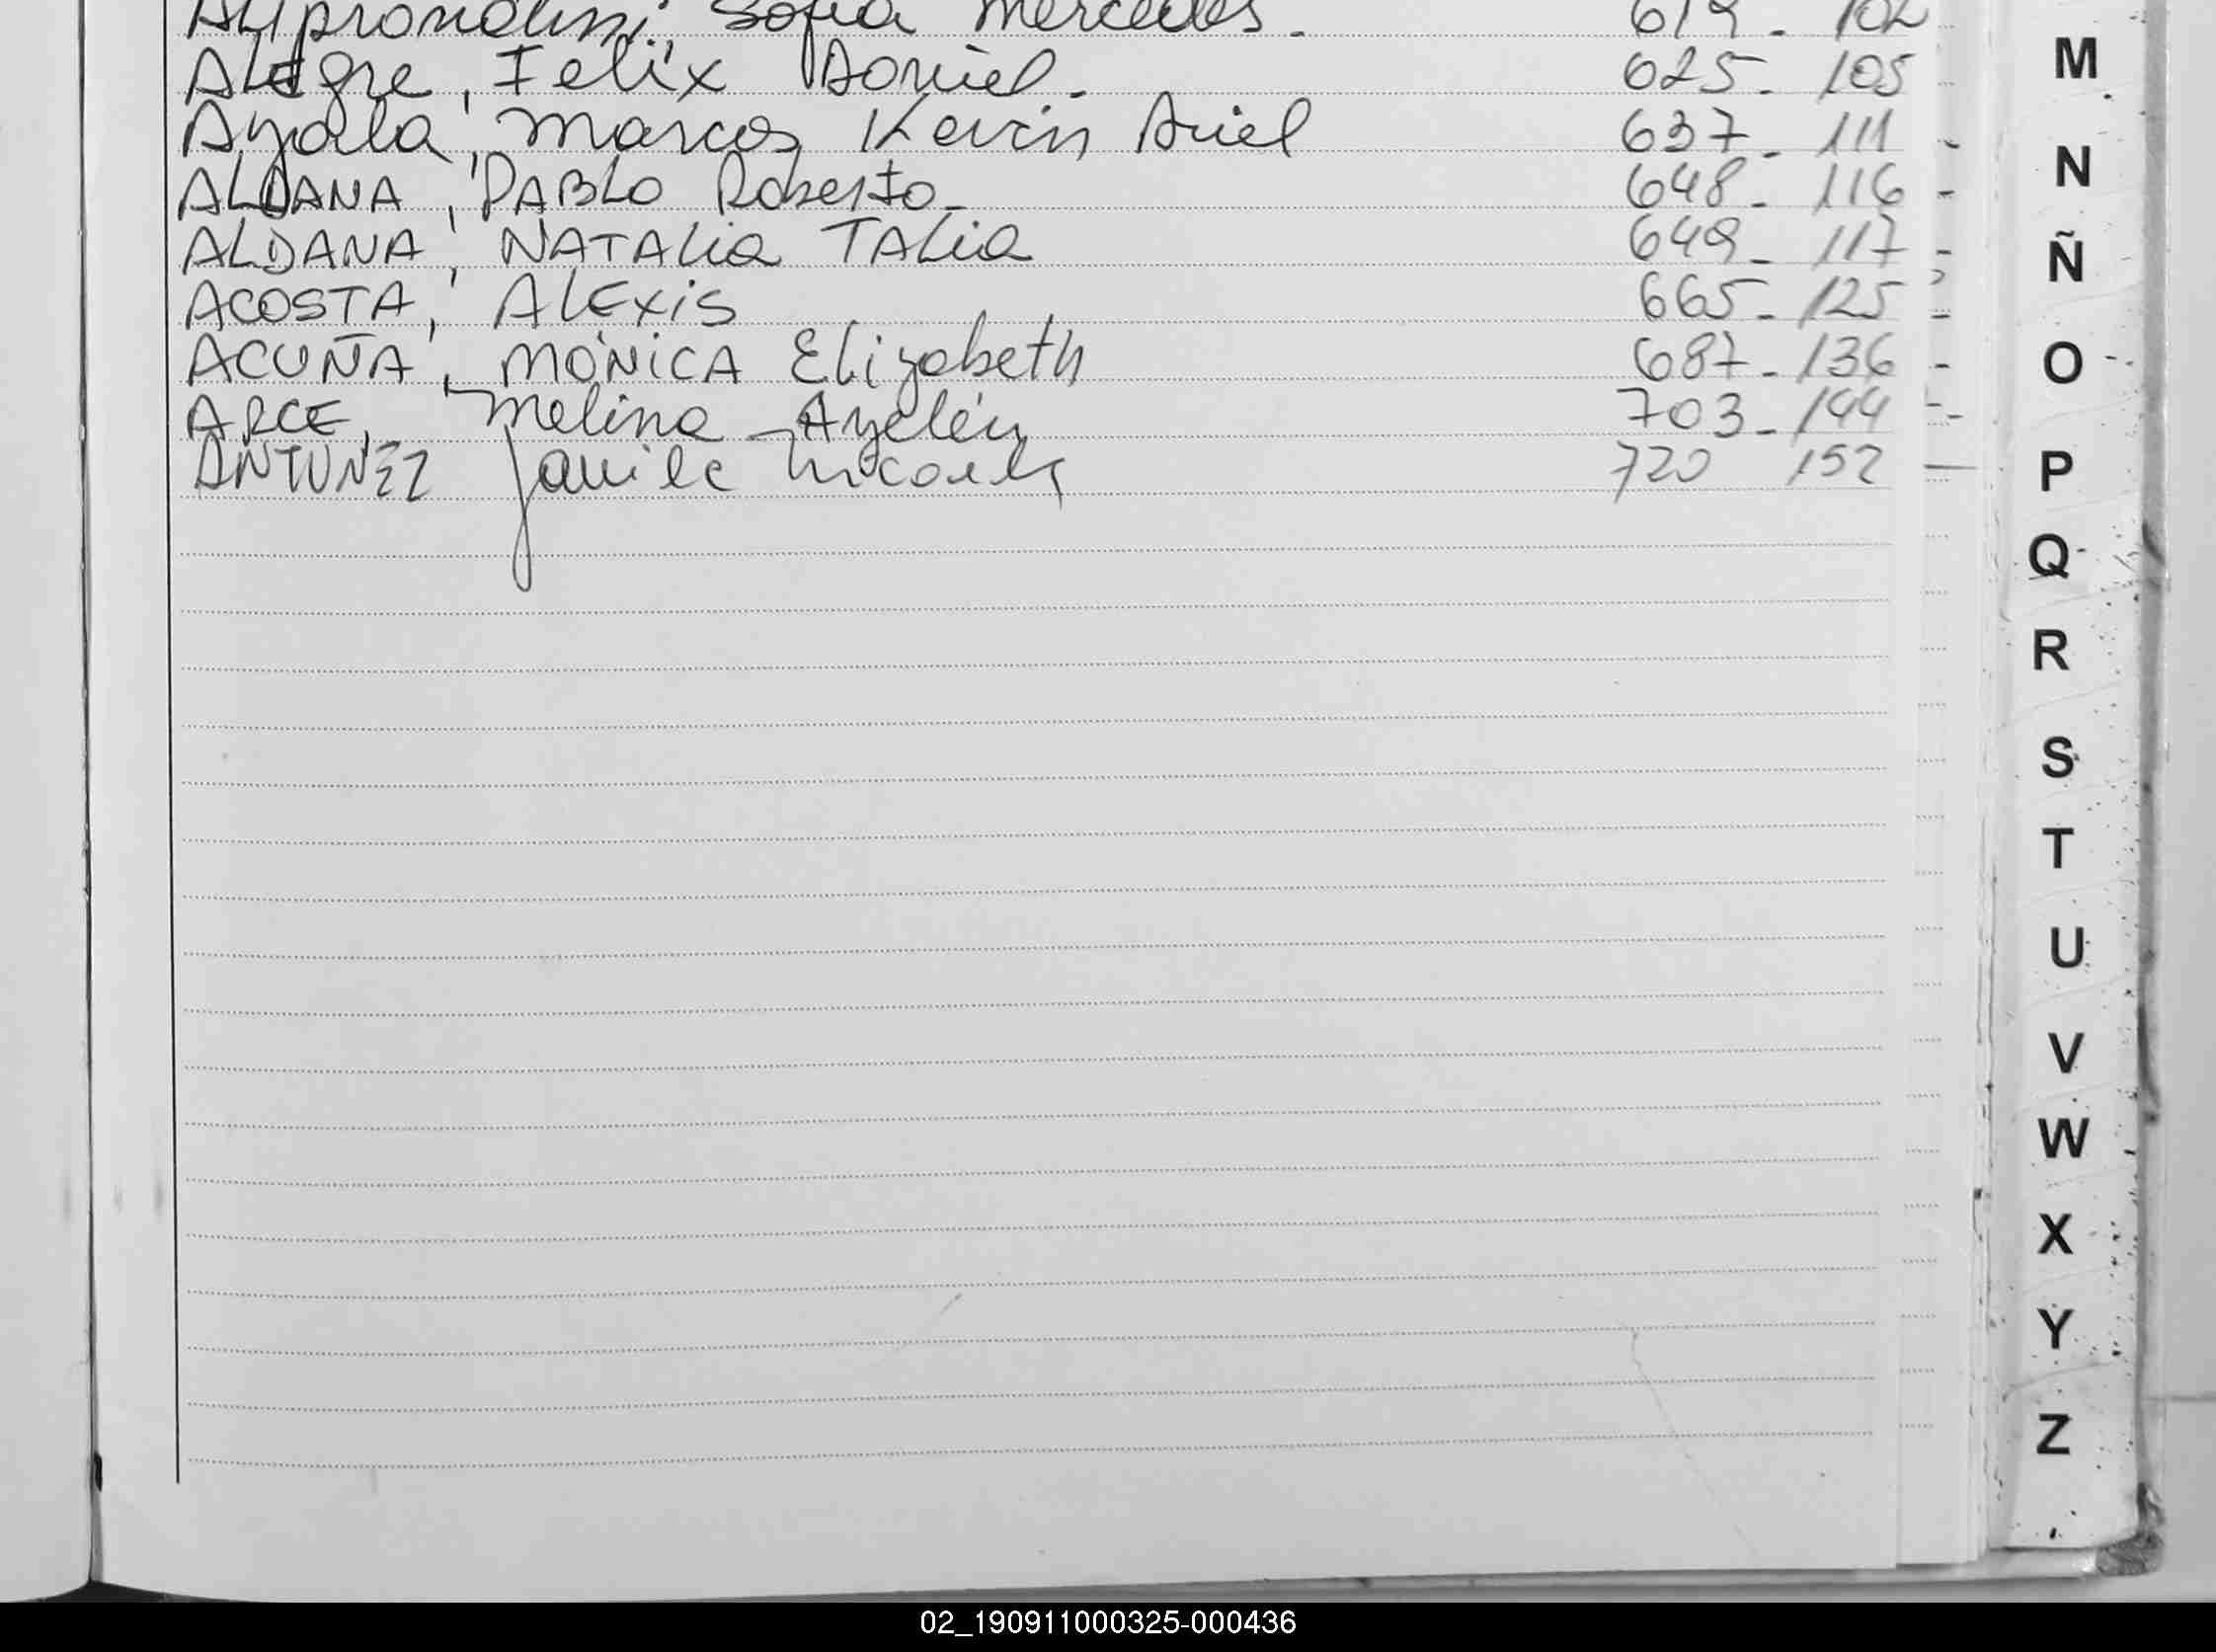 Sofia Mercedes. 619. 102
Alegre, Felix Daniel. 625. 105
Ayala, Marcos Kevin Ariel 637. 111
ALDANA, PABLO Roberto. 648. 116
ALDANA, NATALia TALia 649. 117
ACOSTA, ALExis 665. 125
ACUÑA, MÓNiCA Elizabeth 687. 136
ARCE, Melina Ayelén 703. 144
ANTUNEZ 720 152
M
N
Ñ
O
P
Q
R
S
T
U
V
W
X
Y
Z
02_190911000325-000436